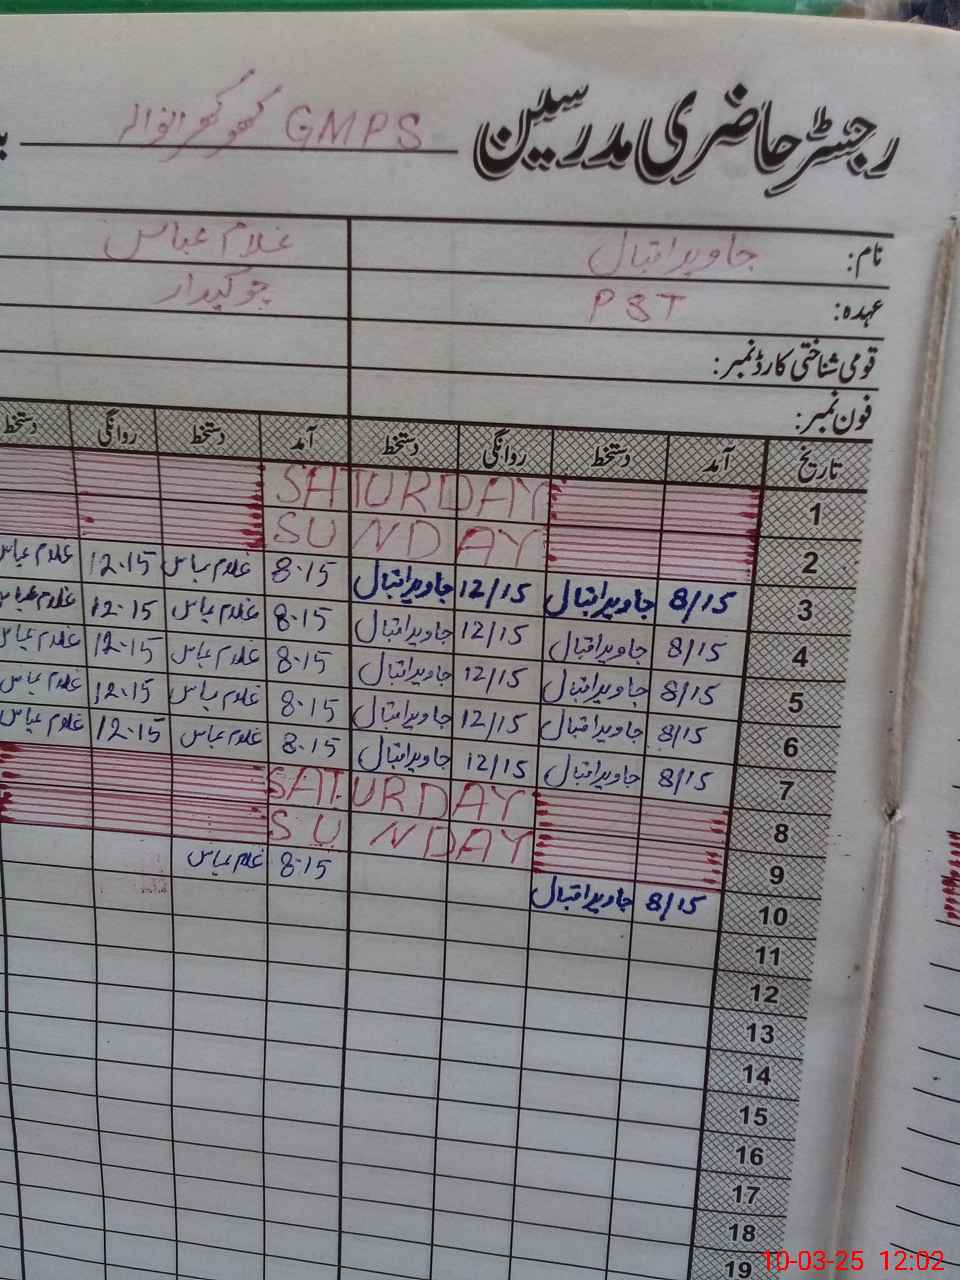 رجسٹر حاضری مدرسین GMPS کھوکھرانوالہ
نام: جاوید اقبال غلام عباس
عہدہ: PST چوکیدار
قومی شناختی کارڈ نمبر:
فون نمبر:
تاریخ آمد دستخط روانگی دستخط آمد دستخط روانگی دستخط
1 SATURDAY
2 SUNDAY
3 8/15 جاوید اقبال 12/15 جاوید اقبال 8-15 غلام عباس 12-15 غلام عباس
4 8/15 جاوید اقبال 12/15 جاوید اقبال 8-15 غلام عباس 12-15 غلام عباس
5 8/15 جاوید اقبال 12/15 جاوید اقبال 8-15 غلام عباس 12-15 غلام عباس
6 8/15 جاوید اقبال 12/15 جاوید اقبال 8-15 غلام عباس 12-15 غلام عباس
7 8/15 جاوید اقبال 12/15 جاوید اقبال 8-15 غلام عباس 12-15 غلام عباس
8 SATURDAY
9 SUNDAY
10 8/15 جاوید اقبال 8-15 غلام عباس
11
12
13
14
15
16
17
18
19
10-03-25 12:02